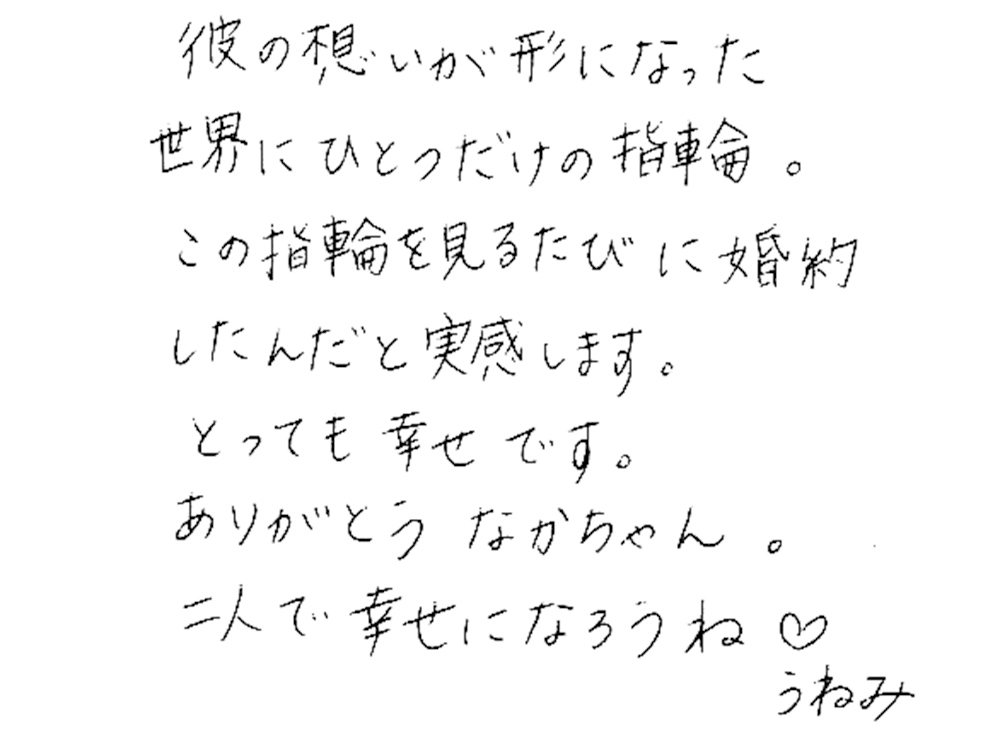 彼の想いが形になった
世界にひとつだけの指輪。
この指輪を見るたびに婚約
したんだと実感します。
とっても幸せです。
ありがとう なかちゃん。
二人で幸せになろうね♡
うねみ